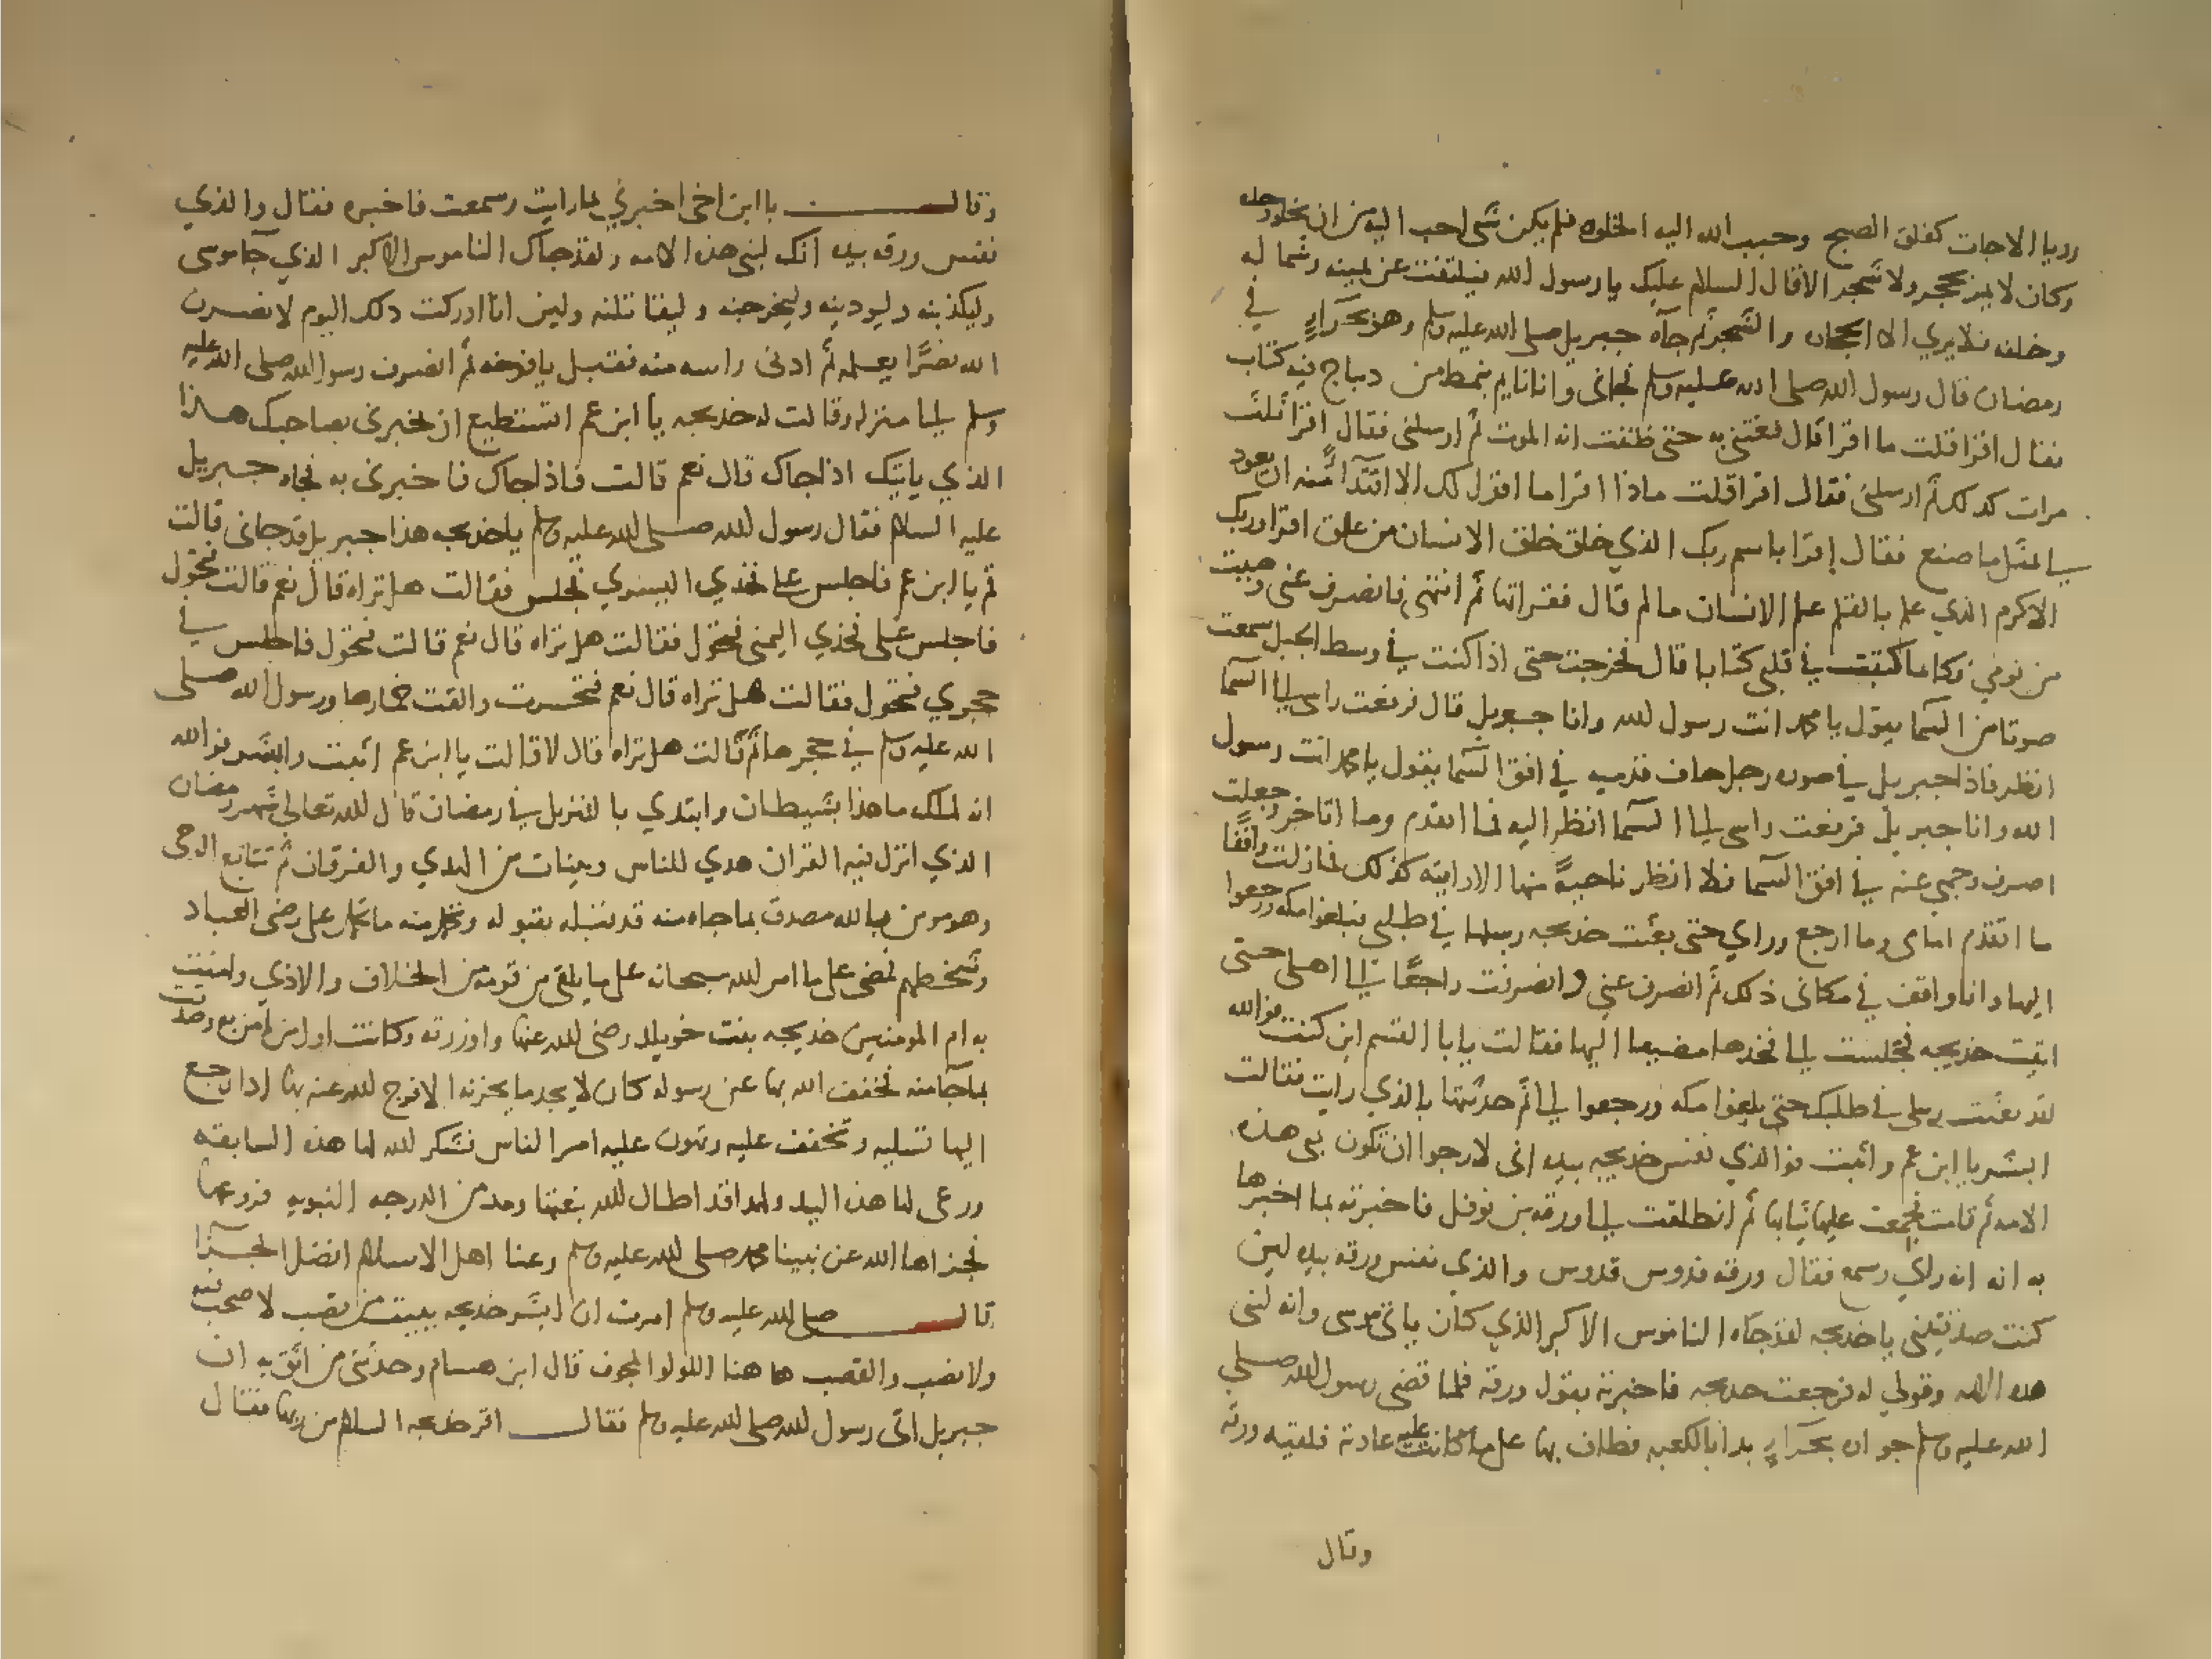 رديا الاجات كفلق الصبح وحبب الله اليه الخلوه فلم يكن شي احب اليه من ان يخلو وحده
وكان لا يمر بحجر ولا شجر الا قال السلام عليك يا رسول الله فيلتفت عن يمينه وشماله
وخلفه فلا يري الا الحجاره والشجر ثم جآه جبريل صلى الله عليه وسلم وهو بحرآء في
رمضان قال رسول الله صلى الله عليه وسلم فجاني وانا نايم بنمط من ديباج فيه كتاب
فقال اقرا قلت ما اقرا قال فغتني به حتى ظننت انه الموت ثم ارسلني فقال اقرا ثلث
مرات كذلك ثم ارسلني فقال اقرا قلت ماذا اقرا ما اقول لك الا افتدآ منه ان يعود
لي المثل ما صنع فقال إقرا باسم ربك الذي خلق خلق الانسان من علق اقرا وربك
الاكرم الذي علم بالقلم علم الانسان مالم قال فقراتها ثم انتهى فانصرف عني وهببت
من نومي وكانما كتبت في قلبي كتابا قال فخرجت حتى اذا كنت في وسط الجبل سمعت
صوتا من السما يقول يا محمد انت رسول الله وانا جبريل قال فرفعت راسي الى السما
انظر فاذا جبريل في صوره رجل صاف قدميه في افق السما يقول يا محمد انت رسول
الله وانا جبريل فرفعت راسي الى السما انظر اليه فما اتقدم وما اتاخر وجعلت
اصرف وجهي عنه في افق السما فلا انظر ناحيةً منها الا رايته كذلك فما زلت واقفًا
ما اتقدم امامي وما ارجع وراي حتى بعثت خديجه رسلها في طلبي فبلغوا مكه ورجعوا
اليها وانا واقف في مكاني ذلك ثم انصرف عني وانصرفت راجعًا الى اهلي حتى
اتيت خديجه فجلست الى فخدها مضيفا اليها فقالت يا ابا القسم اين كنت فوالله
لقد بعثت رسلي في طلبك حتى بلغوا مكه ورجعوا لي ثم حدثتها بالذي رايت فقالت
ابشر يا ابن عم واثبت فوالذي نفس خديجه بيده اني لارجوا ان تكون بي هذه
الامه ثم قامت فجمعت عليها ثيابها ثم انطلقت الى ورقه بن نوفل فاخبرته بما اخبرها
به انه انه راي وسمع فقال ورقه قدوس قدوس والذي نفس ورقه بيده لين
كنت صدقتيني يا خديجه لقد جآه الناموس الاكبر الذي كان ياتي موسى وانه لنبي
هذه الامه وقولي له فرجعت خديجه فاخبرته بقول ورقه فلما قضى رسول الله صلى
الله عليه وسلم جواره بحرآء بدا بالكعبه فطاف بها على ما كانت عليه عادته فلقيه ورقه
وقال
وقالـــت يا ابن اخي اخبرني بما رايت وسمعت فاخبره فقال والذي
نفس ورقه بيده انك لنبي هذه الامه ولقد جاك الناموس الاكبر الذي جآ موسى
وليكذبنه وليوذينه وليخرجنه وليقاتلنه ولين انا ادركت ذلك اليوم لانصرن
الله نصرًا يعلمه ثم ادنى راسه منه فقبل يافوخه ثم انصرف رسول الله صلى الله عليه
وسلم الى منزله وقالت له خديجه يا ابن عم اتستطيع ان تخبرني بصاحبك هذا
الذي ياتيك اذا جاك قال نعم قالت فاذا جاك فاخبرني به فجاه جبريل
عليه السلام فقال رسول الله صلى الله عليه وسلم يا خديجه هذا جبريل قد جاني قالت
قم يا ابن عم فاجلس على فخذي اليسري فجلس فقالت هل تراه قال نعم قالت فتحول
فاجلس على فخذي اليمنى فتحول فقالت هل تراه قال نعم قالت فتحول فاجلس في
حجري فتحول فقالت هل تراه قال نعم فتحسرت والقت خمارها ورسول الله صلى
الله عليه وسلم في حجرها ثم قالت هل تراه قال لا قالت يا ابن عم اثبت وابشر فوالله
انه لملك ما هذا بشيطان وابتدي بالتنزيل في رمضان قال الله تعالى شهر رمضان
الذي انزل فيه القران هدي للناس وبينات من الهدي والفرقان ثم تتابع الوحي
وهو مومن بالله مصدق بما جاه منه قد تقبله بقبوله وتحمل منه ما تحمل على رضى العباد
وسخطهم فمضى على ما امر الله سبحانه على ما يلقى من قومه من الخلاف والاذي وامنت
به ام المومنين خديجه بنت خويلد رضى الله عنها وازرته وكانت اول من امن به وصدقت
بما جآ منه فخفف الله بها عن رسوله كان لا يجد ما يحزنه الا فرج الله عنه بها اذا رجع
اليها تسليه وتخفف عليه وتهون عليه امر الناس فشكر الله لها هذه السابقه
ورعى لها هذه اليد ولقد اطال الله بقآها ومد من الدرجه النبويه فروعها
فجزاها الله عن نبينا محمد صلى الله عليه وسلم وعنا اهل الاسلام افضل الجزآ
قالـــ صلى الله عليه وسلم امرت ان ابشر خديجه ببيت من قصب لا صخب فيه
ولا نصب والقصب ها هنا اللولو المجوف قال ابن هشام وحدثني من اثق به ان
جبريل اتى رسول الله صلى الله عليه وسلم فقالـــ اقر خديجه السلام من ربها فقال